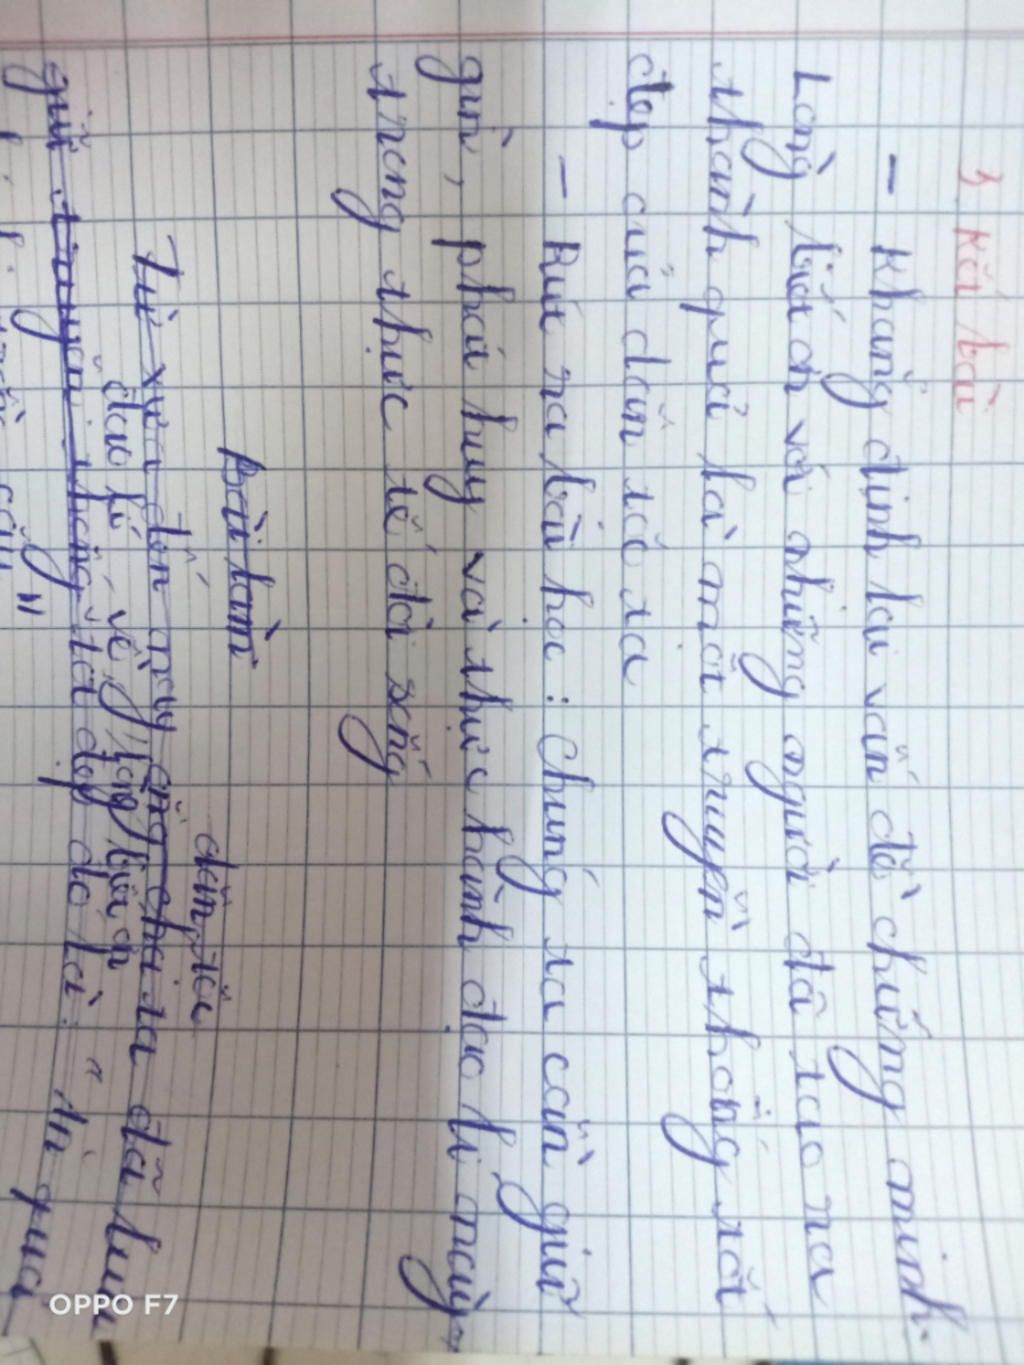 3. Kết bài
- Khẳng định lại vấn đề chứng minh.
Lòng biết ơn với những người đã tạo ra
thành quả là một truyền thống tốt
đẹp của dân tộc ta
- Rút ra bài học: Chúng ta cần giữ
gìn, phát huy và thực hành đạo lí này,
trong thực tế đời sống
Bài làm
dân tộc
Từ xưa đến nay ông cha ta đã lưu
đạo lí về lòng biết ơn
giữ truyền thống tốt đẹp đó là: "Ăn quả
cây"
OPPO F7